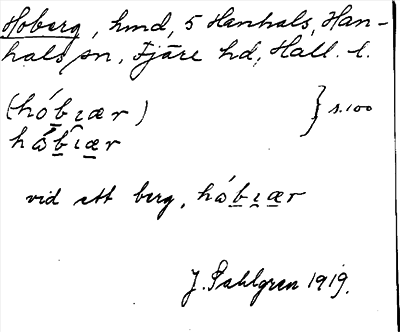 Hoberg, hmd, 5 Hanhals, Han-
hals sn, Fjäre hd, Hall. l.
(hóbıær) } s. 100
hábıær
vid ett berg, hábıær
J. Sahlgren 1919.